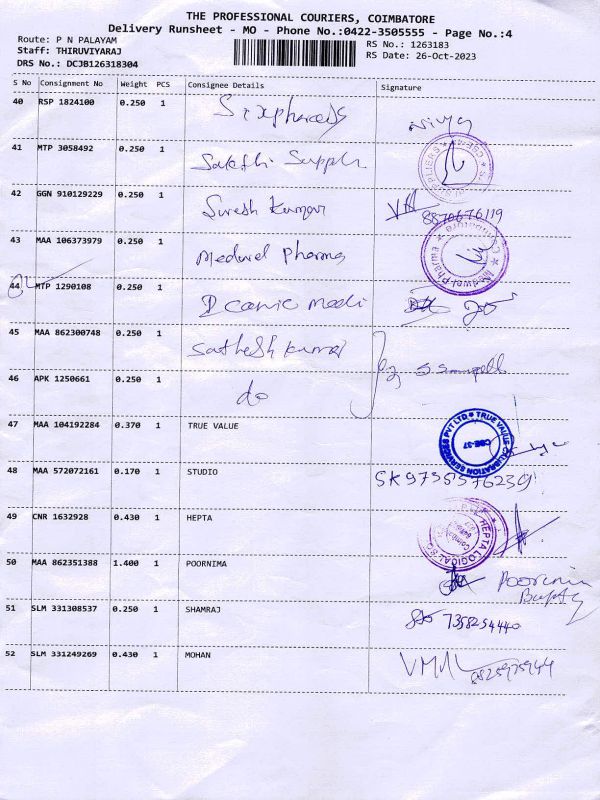 THE PROFESSIONAL COURIERS, COIMBATORE
Delivery Runsheet - MO - Phone No.:0422-3505555 - Page No.:4
Route: P N PALAYAM
Staff: THIRUVIYARAJ
DRS No.: DCJB126318304
RS No.: 1263183
RS Date: 26-Oct-2023
S No Consignment No Weight PCS Consignee Details Signature
40 RSP 1824100 0.250 1
41 MTP 3058492 0.250 1 Sakthi
42 GGN 910129229 0.250 1 Suresh Kumar 8870676119
43 MAA 106373979 0.250 1 Medwel Pharma
44 MTP 1290108 0.250 1
45 MAA 862300748 0.250 1 Sathesh Kumar
46 APK 1250661 0.250 1 do
47 MAA 104192284 0.370 1 TRUE VALUE
TRUE VALUE CALIBRATION SERVICES PVT LTD
CBE-37
48 MAA 572072161 0.170 1 STUDIO
49 CNR 1632928 0.430 1 HEPTA
50 MAA 862351388 1.400 1 POORNIMA Poornima
51 SLM 331308537 0.250 1 SHAMRAJ 7358254440
52 SLM 331249269 0.430 1 MOHAN